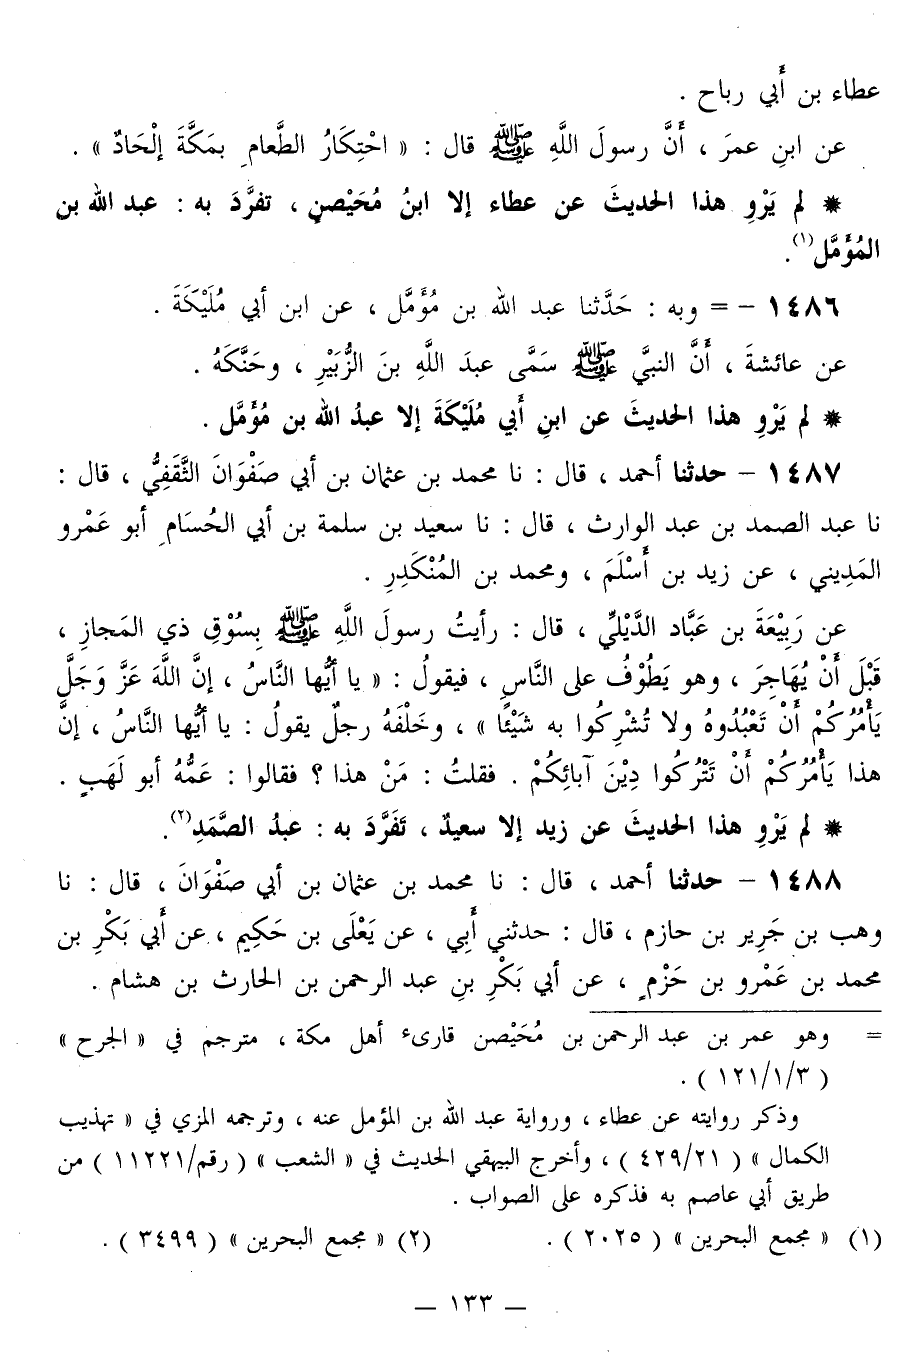 عطاء بن أَبي رباح .
عن ابنِ عمرَ ، أَنَّ رسولَ اللَّهِ ﷺ قال : « احْتِكَارُ الطَّعامِ بمَكَّةَ إلْحَادٌ » .
* لم يَرْوِ هذا الحديثَ عن عطاء إلا ابنُ مُحَيْصنٍ ، تفرَّدَ به : عبد الله بن
المُؤَمَّل(١).
١٤٨٦ – = وبه : حَدَّثنا عبد الله بن مُؤَمَّل ، عن ابن أبي مُلَيْكَةَ .
عن عائشةَ ، أَنَّ النبيَّ ﷺ سَمَّى عبدَ اللَّهِ بنَ الزُّبَيْرِ ، وحَنَّكَهُ .
* لم يَرْوِ هذا الحديثَ عن ابنِ أَبي مُلَيْكَةَ إلا عبدُ الله بن مُؤَمَّل .
١٤٨٧ – حدثنا أحمد ، قال : نا محمد بن عثمان بن أبي صَفْوَانَ الثَّقَفِيُّ ، قال :
نا عبد الصمد بن عبد الوارث ، قال : نا سعيد بن سلمة بن أبي الحُسَامِ أبو عَمْرو
المَدِيني ، عن زيد بن أَسْلَمَ ، ومحمد بن المُنْكَدِرِ .
عن رَبِيْعَةَ بن عَبَّاد الدَّيْليِّ ، قال : رأيتُ رسولَ اللَّهِ ﷺ بِسُوْقِ ذي المَجازِ ،
قَبْلَ أَنْ يُهَاجِرَ ، وهو يَطُوْفُ على النَّاسِ ، فيقولُ : « يا أيُّها النَّاسُ ، إنَّ اللَّهَ عَزَّ وَجَلَّ
يَأْمُرُكُمْ أَنْ تَعْبُدُوهُ ولا تُشْرِكُوا به شَيْئًا » ، وخَلْفَهُ رجلٌ يقولُ : يا أيُّها النَّاسُ ، إنَّ
هذا يَأْمُرُكُمْ أَنْ تَتْرُكوا دِيْنَ آبائِكُمْ . فقلتُ : مَنْ هذا ؟ فقالوا : عَمُّهُ أبو لَهَبٍ .
* لم يَرْوِ هذا الحديثَ عن زيد إلا سعيدٌ ، تَفَرَّدَ به : عبدُ الصَّمَدِ(٢).
١٤٨٨ – حدثنا أحمد ، قال : نا محمد بن عثمان بن أبي صَفْوَانَ ، قال : نا
وهب بن جَرِير بن حازم ، قال : حدثني أَبِي ، عن يَعْلَى بن حَكِيم ، عن أَبي بَكْرِ بن
محمد بن عَمْرو بن حَزْمٍ ، عن أبي بَكْرِ بنِ عبد الرحمن بن الحارث بن هشام .
= وهو عمر بن عبد الرحمن بن مُحَيْصن قارىء أهل مكة ، مترجم في « الجرح »
( ٣/١/١٢١ ) .
وذكر روايته عن عطاء ، ورواية عبد الله بن المؤمل عنه ، وترجمه المزي في « تهذيب
الكمال » ( ٤٢٩/٢١ ) ، وأخرج البيهقي الحديث في « الشعب » ( رقم/١١٢٢١ ) من
طريق أبي عاصم به فذكره على الصواب .
(١) « مجمع البحرين » ( ٢٠٢٥ ) . (٢) « مجمع البحرين » ( ٣٤٩٩ ) .
– ١٣٣ –